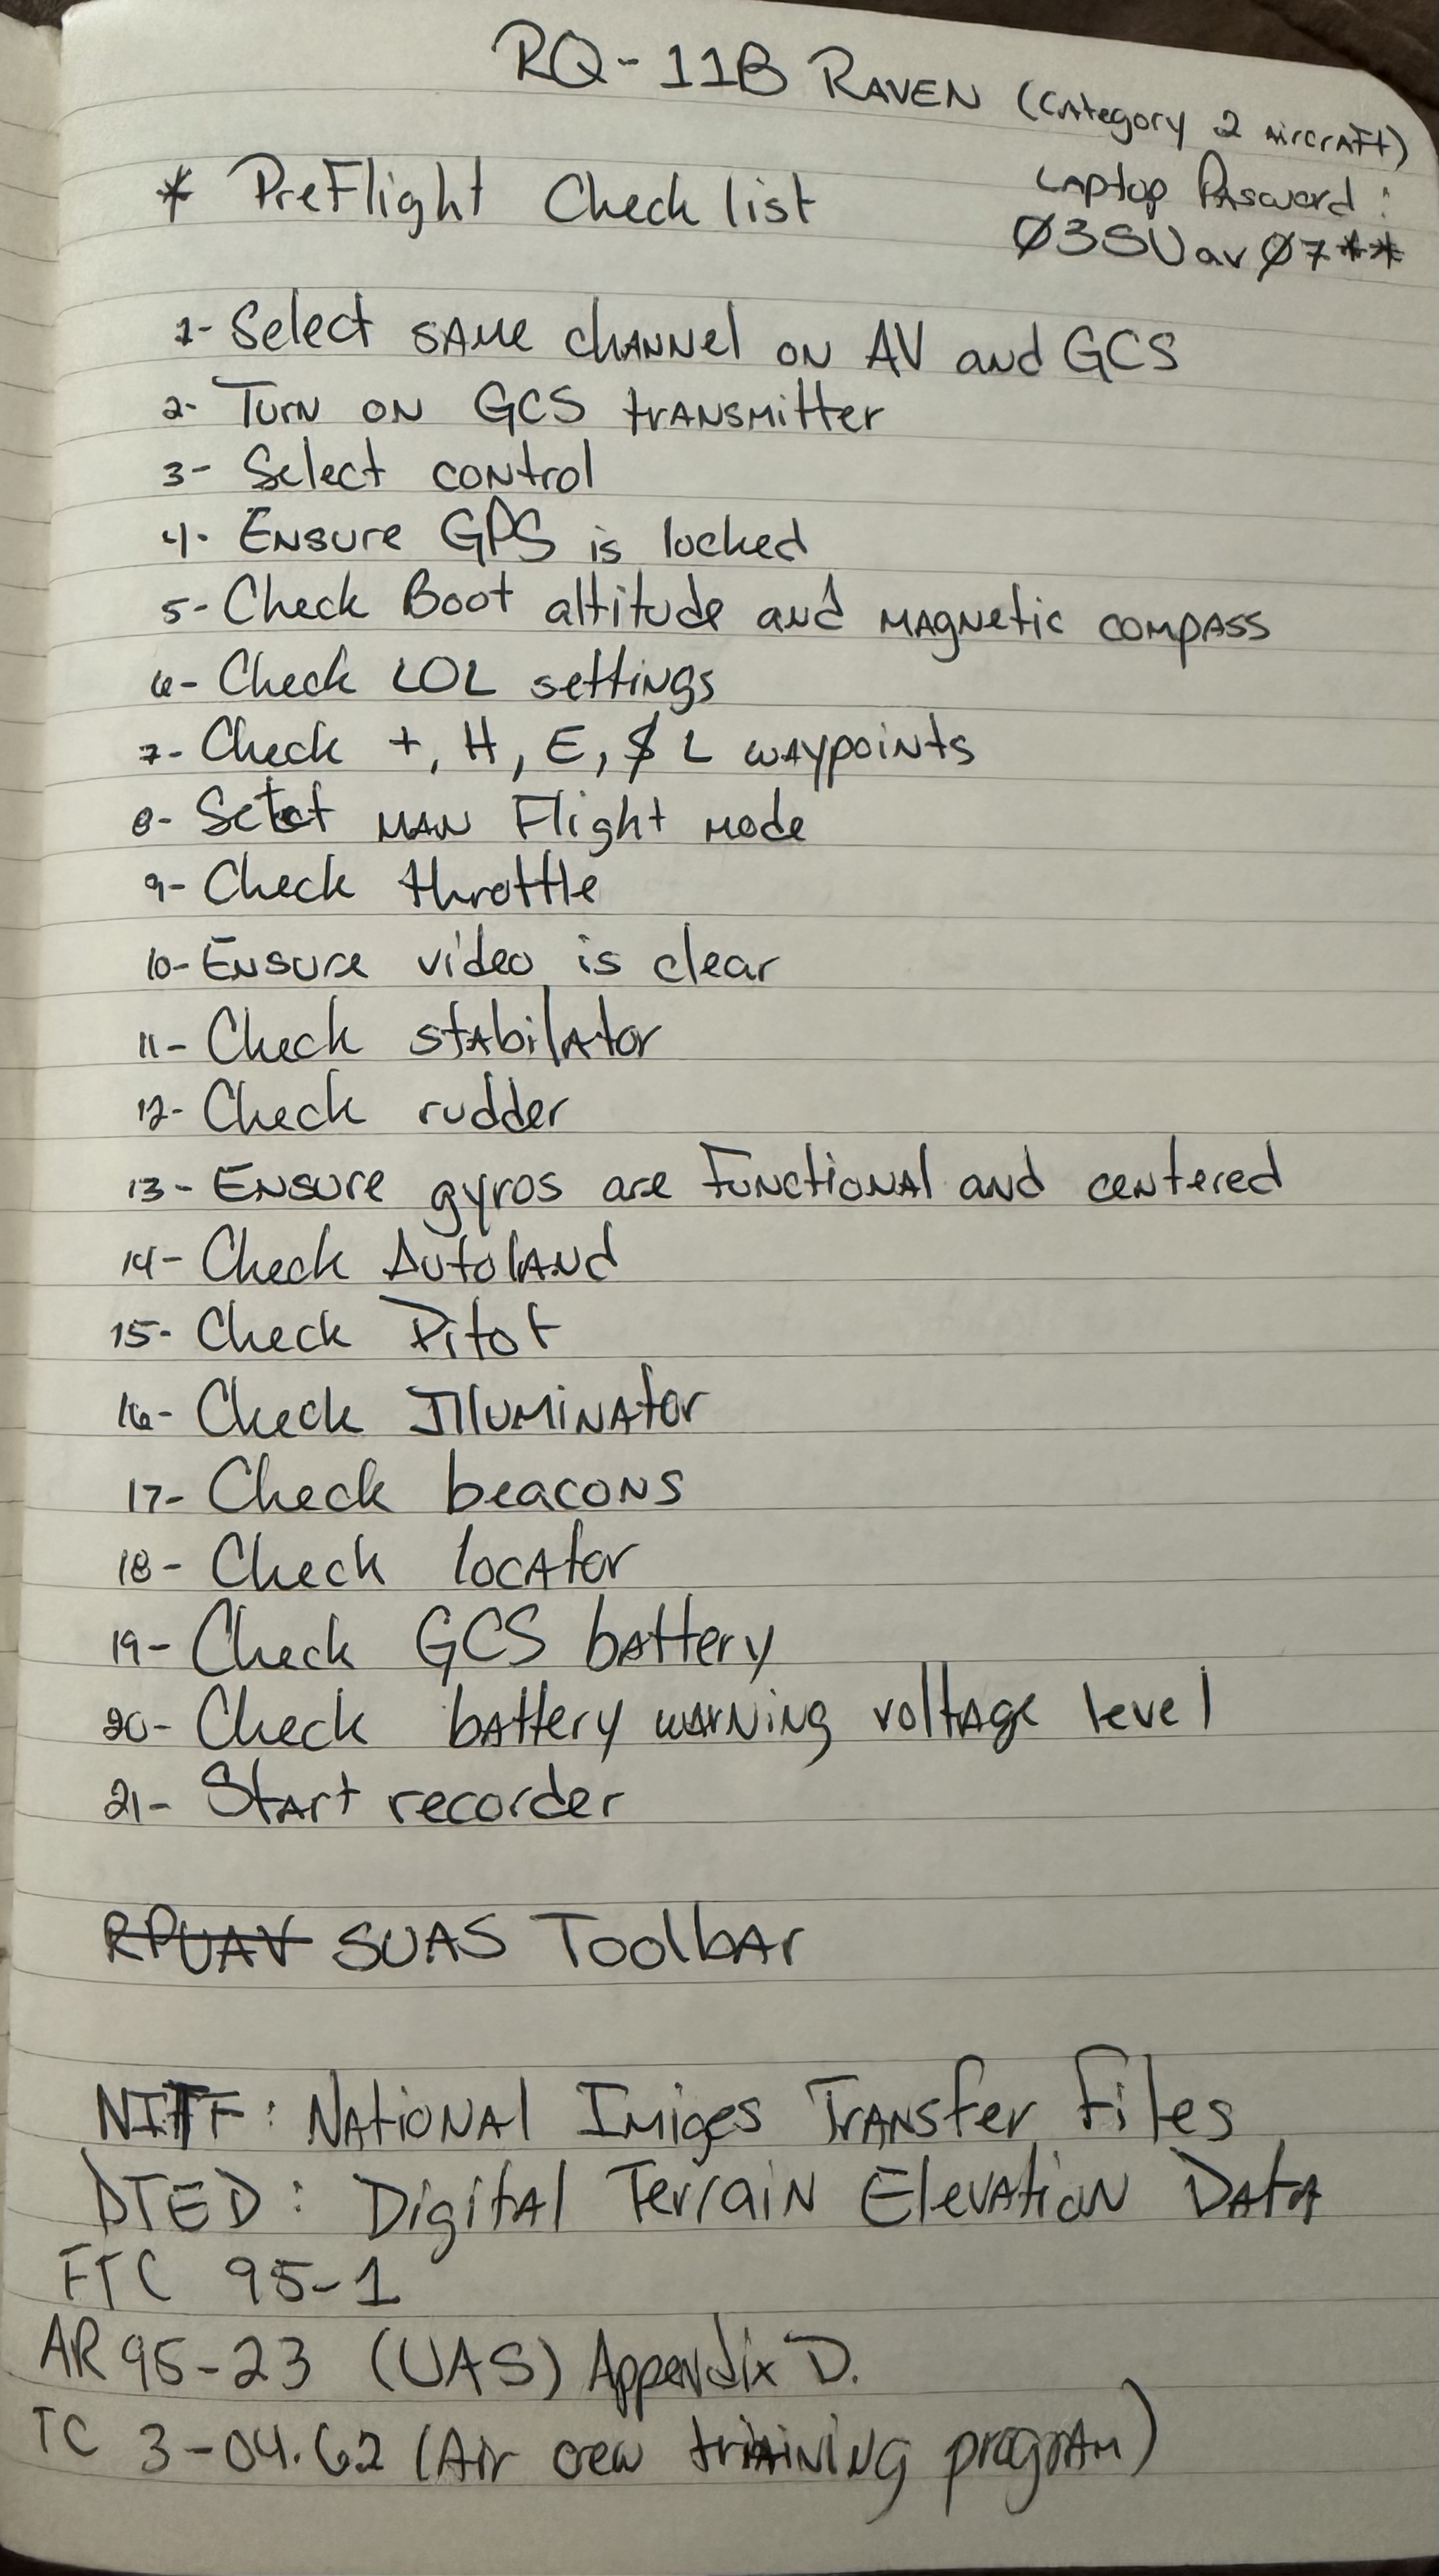 RQ-11B RAVEN (Category 2 aircraft)
* PreFlight Check list
Laptop Pasword :
Ø3SUavØ7**
1- Select same channel on AV and GCS
2- Turn on GCS transmitter
3- Select control
4- Ensure GPS is locked
5- Check Boot altitude and magnetic compass
6- Check LOL settings
7- Check +, H, E, $ L waypoints
8- Select MAN Flight Mode
9- Check throttle
10- Ensure video is clear
11- Check stabilator
12- Check rudder
13- Ensure gyros are Functional and centered
14- Check Autoland
15- Check Pitot
16- Check Illuminator
17- Check beacons
18- Check locator
19- Check GCS battery
20- Check battery warning voltage level
21- Start recorder
RPUAV SUAS Toolbar
NITF : National Imiges Transfer Files
DTED : Digital Terrain Elevation Data
FTC 95-1
AR 95-23 (UAS) Appendix D.
TC 3-04.62 (Air crew training program)